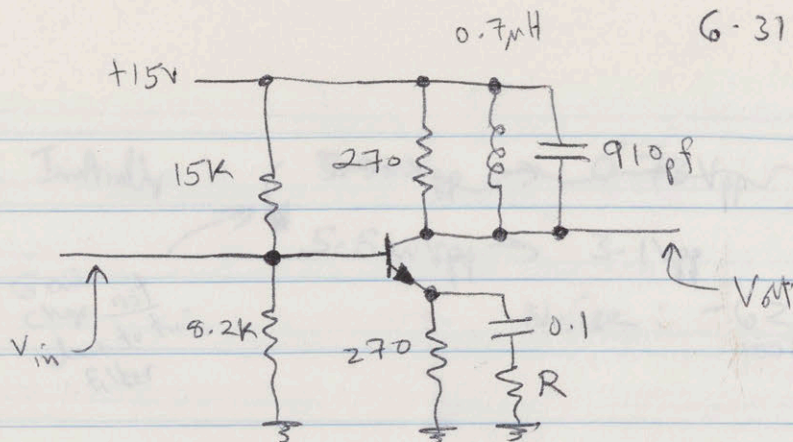 0.7μH
6-31
+15v
15K
270
910pf
8.2K
270
0.1
R
Vin
Vout